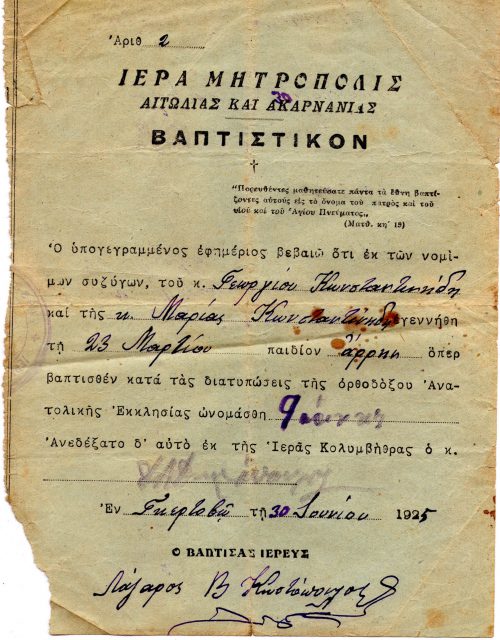 Ἀριθ 2
ΙΕΡΑ ΜΗΤΡΟΠΟΛΙΣ
ΑΙΤΩΛΙΑΣ ΚΑΙ ΑΚΑΡΝΑΝΙΑΣ
ΒΑΠΤΙΣΤΙΚΟΝ
"Πορευθέντες μαθητεύσατε πάντα τὰ ἔθνη βαπτί-
ζοντες αὐτοὺς εἰς τὸ ὄνομα τοῦ πατρὸς καὶ τοῦ
υἱοῦ καὶ τοῦ Ἁγίου Πνεύματος„
(Ματθ. κη' 19)
Ὁ ὑπογεγραμμένος ἐφημέριος βεβαιῶ ὅτι ἐκ τῶν νομί-
μων συζύγων, τοῦ κ. Γεωργίου Κωνσταντινίδη
καί τῆς κ. Μαρίας Κωνσταντινίδη ἐγεννήθη
τῇ 23 Μαρτίου παιδίον ἄρρεν ὅπερ
βαπτισθέν κατά τὰς διατυπώσεις τῆς ὀρθοδόξου Ἀνα-
τολικῆς Ἐκκλησίας ὠνομάσθη
Ἀνεδέξατο δ' αὐτό ἐκ τῆς Ἱερᾶς Κολυμβήθρας ὁ κ.
Ἐν τῇ 30 Ἰουνίου 1925
Ο ΒΑΠΤΙΣΑΣ ΙΕΡΕΥΣ
Λάζαρος Β